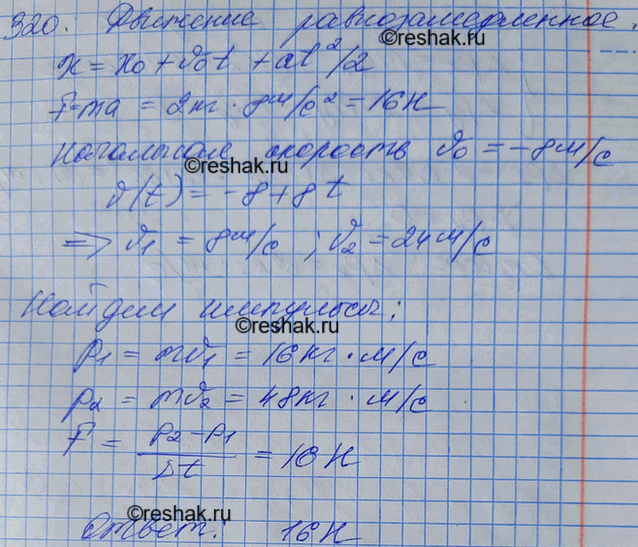 320. Движение равнозамедленное.
©reshak.ru
x = x₀ + v₀t + at²/2
F=ma = 2кг · 8м/с² = 16Н
Начальная скорость v₀ = -8м/с
©reshak.ru
v(t) = -8 + 8t
=> v₁ = 8м/с ; v₂ = 24м/с
Найдем импульсы:
©reshak.ru
p₁ = mv₁ = 16кг · м/с
p₂ = mv₂ = 48кг · м/с
F = (p₂ - p₁)/Δt = 16Н
©reshak.ru
Ответ: 16Н